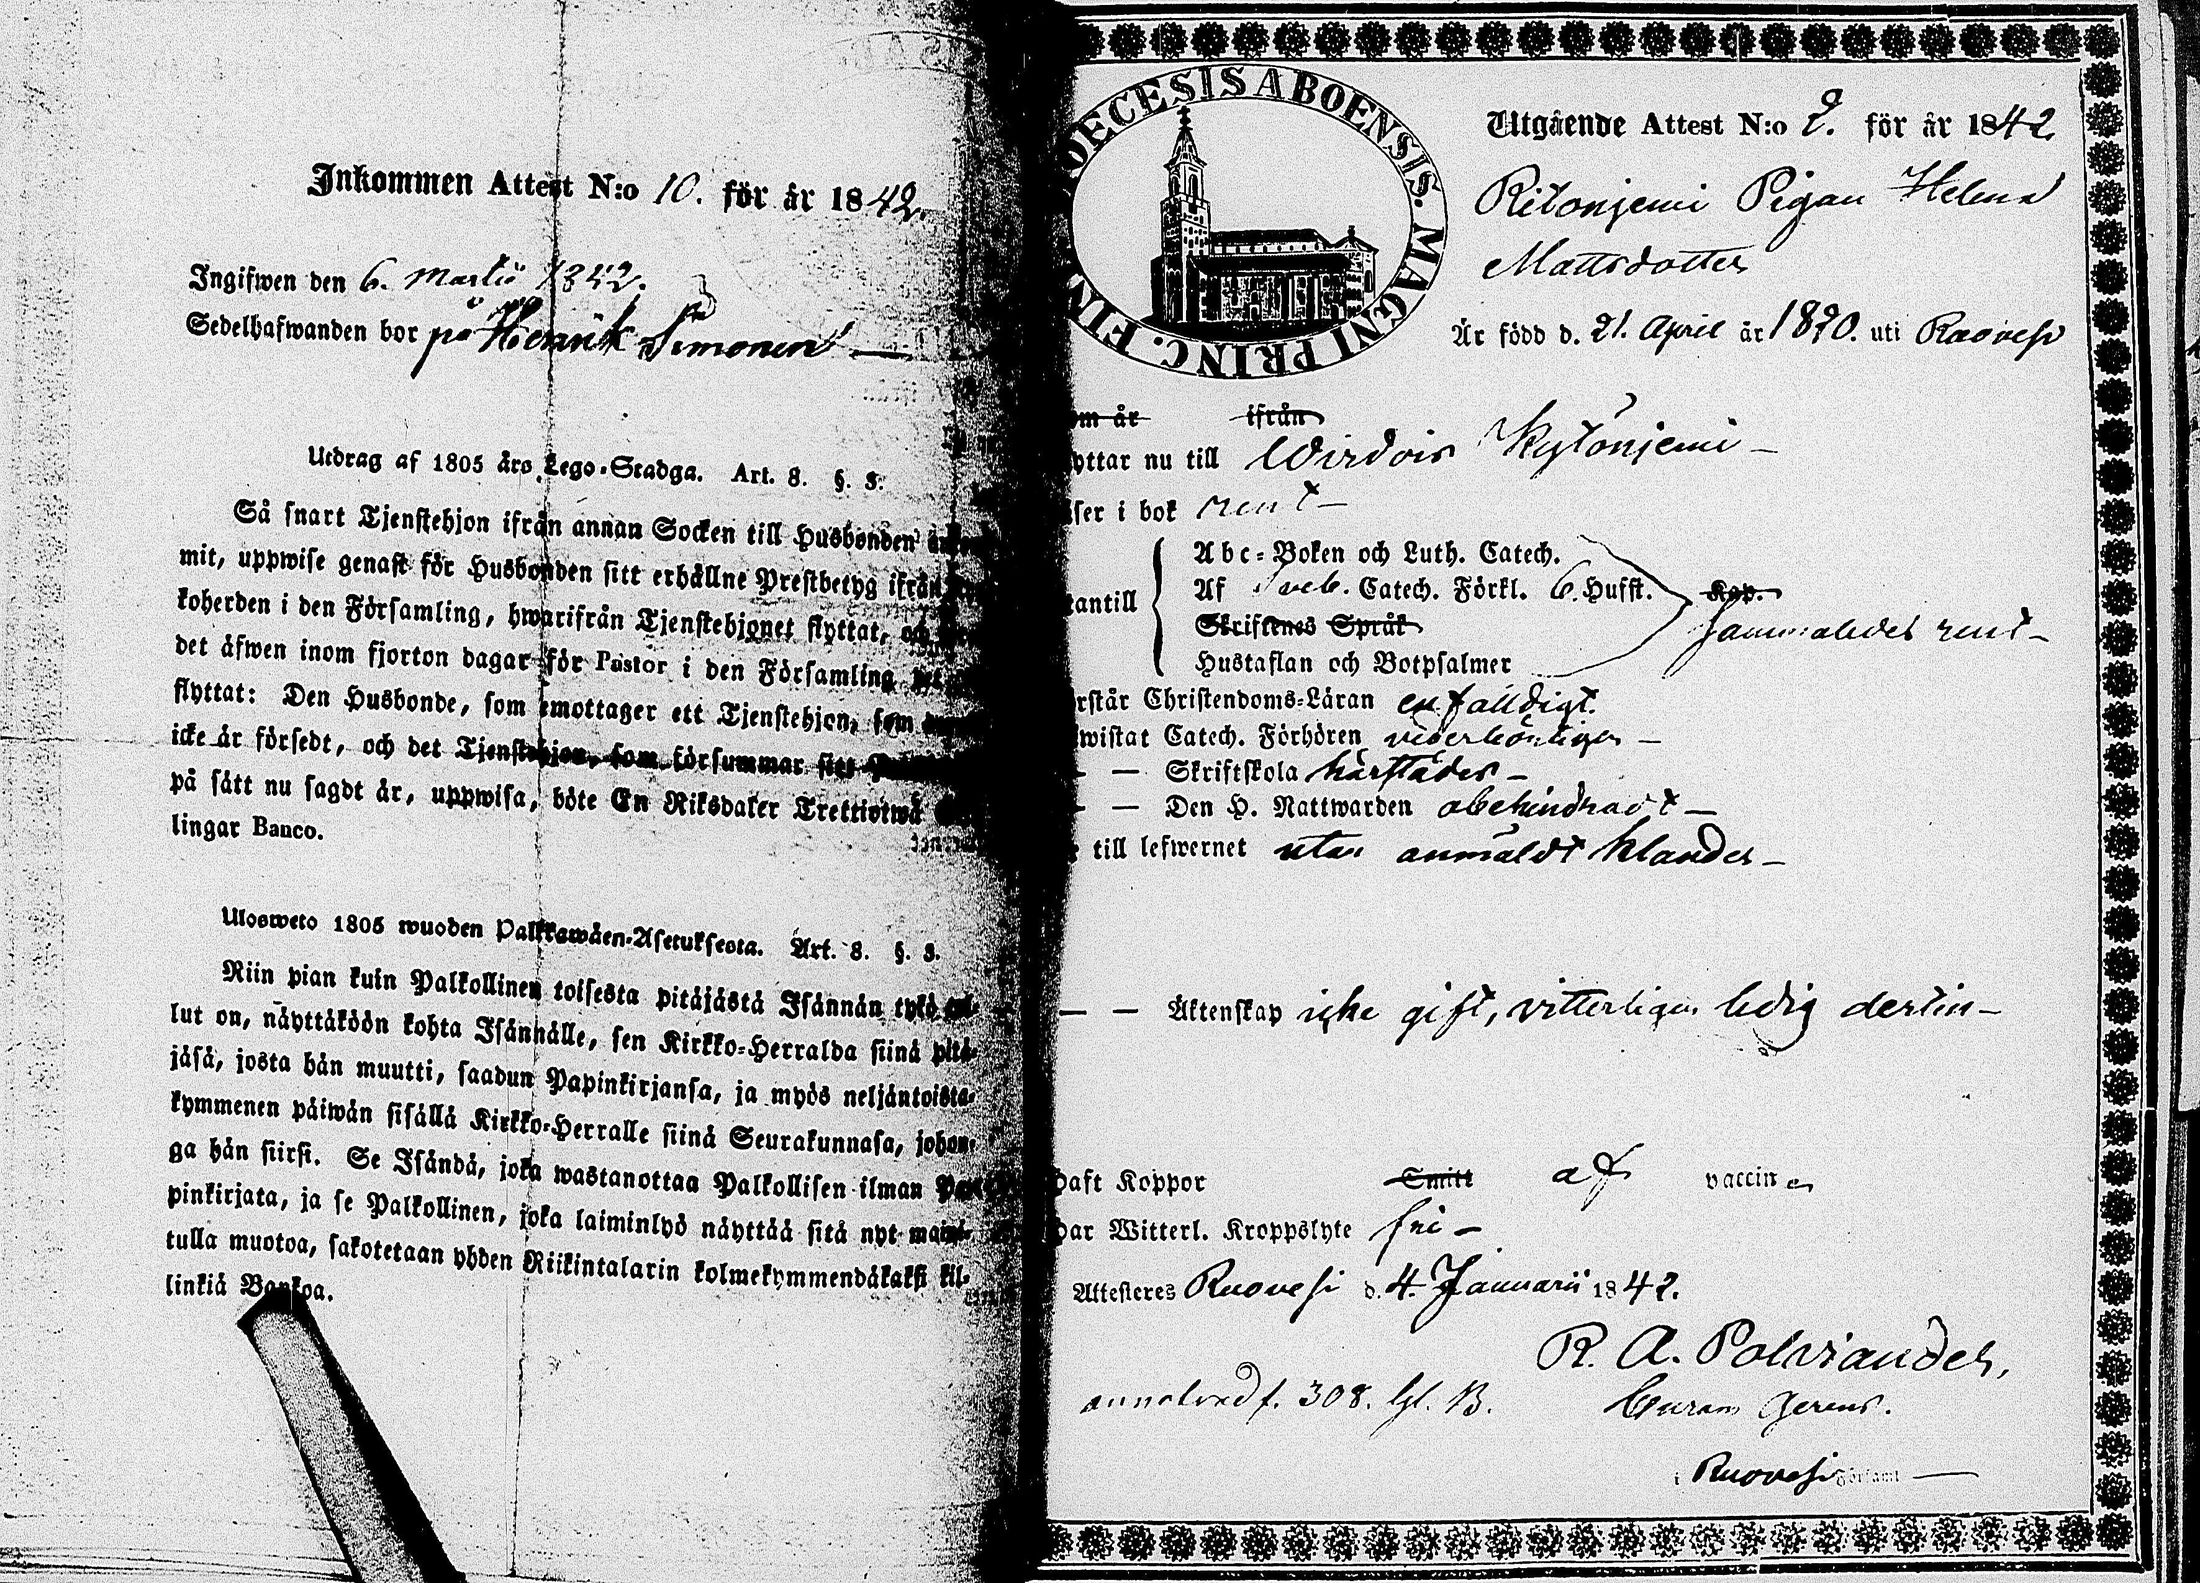 Inkommen Attest N:o 10. för år 1842.
Ingifwen den 6. Martii 1842.
Sedelhafwanden bor på Henrik Simonen
Utdrag af 1805 års Lego-Stadga. Art. 8. §. 3.
Så snart Tjenstehjon ifrån annan Socken till Husbonden
mit, uppwise genast för Husbonden sitt erhållne Prestbetyg ifrån
koherden i den Församling, hwarifrån Tjenstehjonet flyttat, och
det äfwen inom fjorton dagar för Pastor i den Församling
flyttat: Den Husbonde, som emottager ett Tjenstehjon, som
icke är försedt, och det Tjenstehjon, som försummar sitt
på sätt nu sagdt är, uppwisa, böte En Riksdaler Trettiotwå
lingar Banco.
Ulosweto 1805 wuoden Palkkawäen-Asetuksesta. Art. 8. §. 3.
Niin pian kuin Palkollinen toisesta pitäjästä Isännän tykö tul-
lut on, näyttäköön kohta Isännälle, sen Kirkko-Herralda siinä pitä-
jäsä, josta hän muutti, saadun Papinkirjansa, ja myös neljäntoista-
kymmenen päiwän sisällä Kirkko-Herralle siinä Seurakunnasa, johon-
ga hän siirsi. Se Isändä, joka wastanottaa Palkollisen ilman Pa-
pinkirjata, ja se Palkollinen, joka laiminlyö näyttää sitä nyt maini-
tulla muotoa, sakotetaan yhden Riikintalarin kolmekymmendäkaksi kil-
linkiä Bankoa.
OECESIS ABOENSIS. MAGNI PRINC. FIN
Utgående Attest N:o 2. för år 1842
Ritonjemi Pigan Helena
Mattsdotter
Är född d. 21. April år 1820. uti Ruovesi
om år ifrån
yttar nu till Wirdois Kytönjemi —
äser i bok rent —
tantill
Abc-Boken och Luth. Catech.
Af Sveb. Catech. Förkl. 6. Hufst. Kap.
Skriftenes Språk
Hustaflan och Botpsalmer
sammaledes rent —
rstår Christendoms-Läran enfaldigt.
wistat Catech. Förhören vederbörligen —
— — Skriftskola härstädes —
— — Den H. Nattwarden obehindradt —
till lefwernet utan anmäldt klander —
— — Äktenskap icke gift, vitterligen ledig dertill —
haft Koppor Smitt af vaccin en
har Witterl. Kroppslyte fri —
Attesteres Ruovesi d. 4. Januarii 1842.
R. A. Polviander,
Curam Gerens.
f. 308. Lgl. B.
i Ruovesi Församl. —